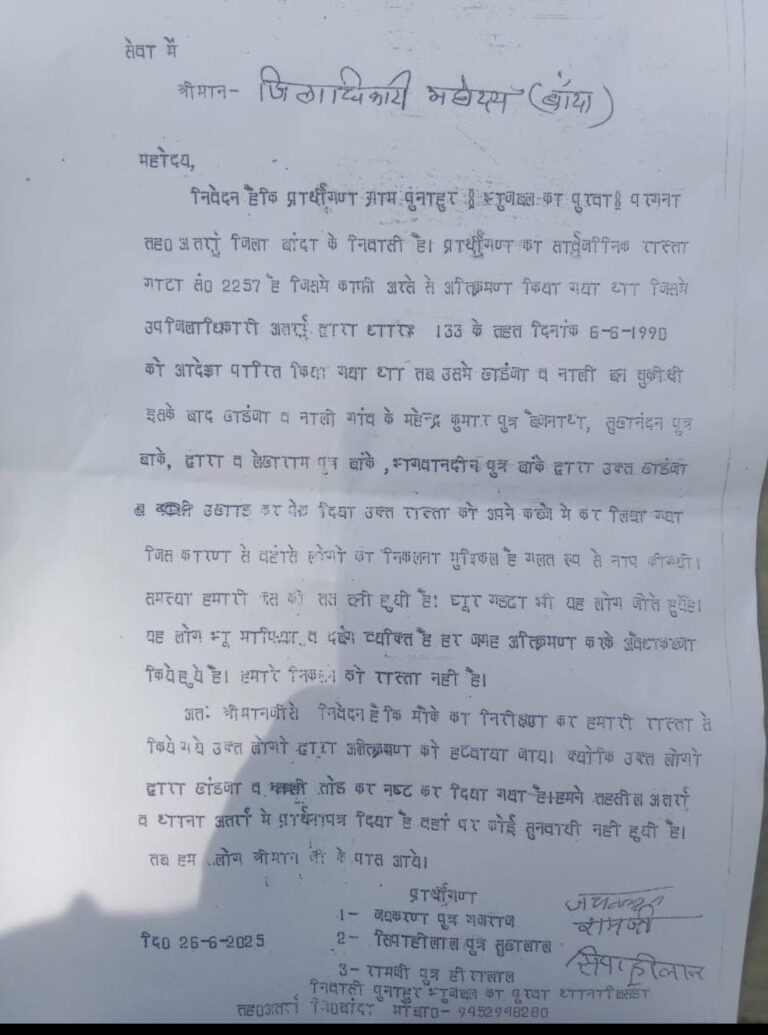 सेवा में
श्रीमान- जिलाधिकारी महोदय (बाँदा)
महोदय,
निवेदन हैकि प्रार्थीगण ग्राम पुनाहुर ॥भुजबल का पुरवा॥ परगना
तह0 अतर्रा जिला बांदा के निवासी है। प्रार्थीगण का सार्वजनिक रास्ता
गाटा सं0 2257 है जिसमे काफी अरसे से अतिक्रमण किया गया था जिसमे
उपजिलाधिकारी अतर्रा द्वारा धारा 133 के तहत दिनांक 6-6-1990
को आदेश पारित किया गया था तब उसमे खडंजा व नाली बन चुकीथी
इसके बाद खडंजा व नाली गांव के महेन्द्र कुमार पुत्र बैजनाथ, सुखनंदन पुत्र
बाके, द्वारा व लेखराम पुत्र बांके ,भगवानदीन पुत्र बांके द्वारा उक्त खडंजा
उखाड कर दिया उक्त रास्ता को अपने कब्जे मे कर लिया गया
जिस कारण से वहांसे लोगो का निकलना मुश्किल है गलत रूप से नाप कीगयी।
समस्या हमारी जस की तस बनी हुयी है। घूर गडटा भी यह लोग जोते हुयेहै।
यह लोग भू माफिया व दबंग व्यक्ति है हर जगह अतिक्रमण करके अवैधकब्जा
कियेहुये है। हमारे निकलने को रास्ता नही है।
अतः श्रीमानजीसे निवेदन हैकि मौके का निरीक्षण कर हमारी रास्ता से
किये गये उक्त लोगो द्वारा अतिक्रमण को हटवाया जाय। क्योकि उक्त लोगो
द्वारा खडंजा व नाली तोड कर नष्ट कर दिया गया है।हमने तहसील अतर्रा
व थाना अतर्रा मे प्रार्थनापत्र दिया है वहां पर कोई सुनवायी नही हुयी है।
तब हम लोग श्रीमान जी के पास आये।
प्रार्थीगण
1- जयकरण पुत्र गजराज जयकरन
रामजी
दि0 26-6-2025 2- सिपाहीलाल पुत्र सुखलाल
3- रामजी पुत्र हीरालाल सिपाहीलाल
निवासी पुनाहुर भुजबल का पुरवा थाना बिसंडा
तह0अतर्रा जि0बांदा मोबा0- 9452948280